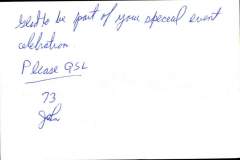 Glad to be part of your special event
celebration.
Please QSL
73
John